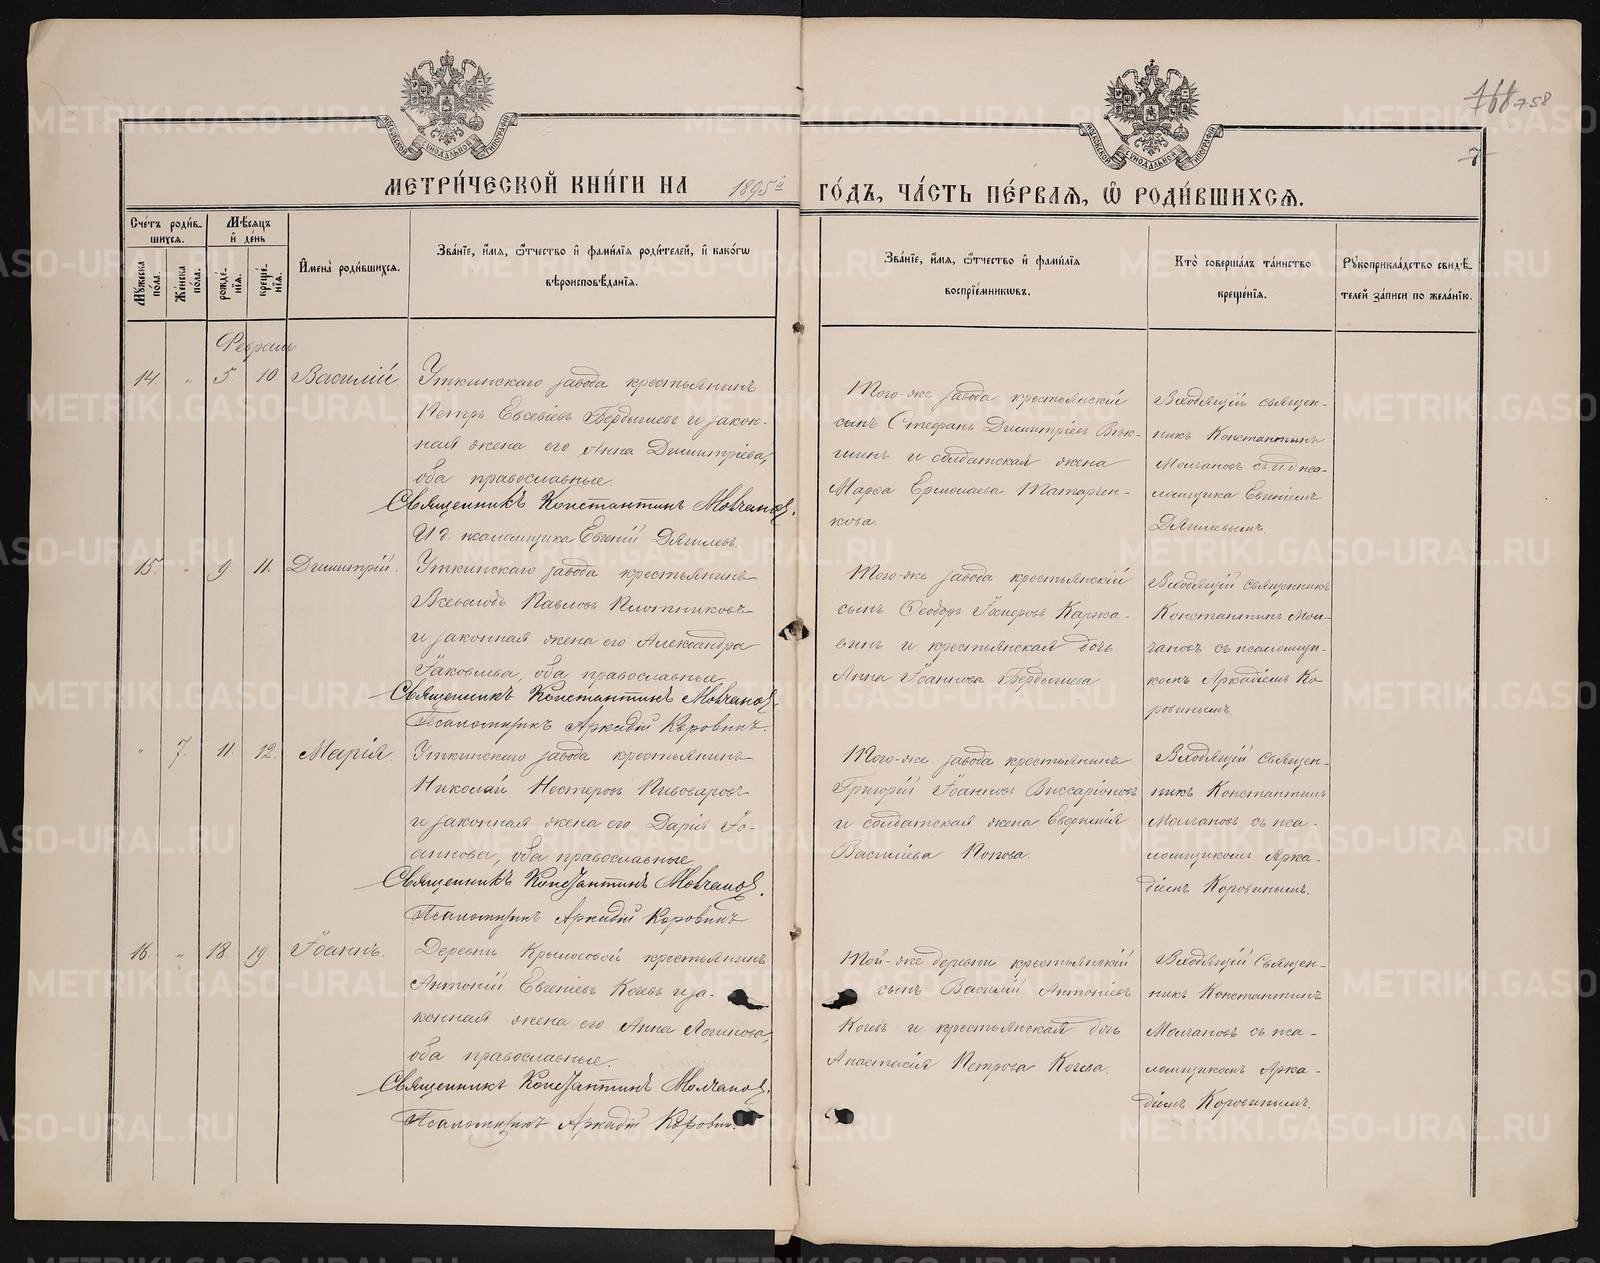 768 758
7
МЕТРИ́ЧЕСКОЙ КНИ́ГИ НА 1895й ГО́ДЪ, ЧА́СТЬ ПЕ́РВАЯ, Ѡ҆ РОДИ́ВШИХСЯ.
МОСКОВСКОЙ СѴНОДАЛЬНОЙ ТИПОГРАФІИ
МОСКОВСКОЙ СѴНОДАЛЬНОЙ ТИПОГРАФІИ
Сче́тъ роди́в-
шихся.
Мѣ́сяцъ
и҆ де́нь
Мꙋ́жеска по́ла.
Же́нска по́ла.
рожде́-
нїѧ.
креще́-
нїѧ.
И҆мена̀ роди́вшихсѧ.
Зва́нїе, и҆́мѧ, ѻ҆́тчество и҆ фами́лїѧ роди́телей, и҆ како́гѡ
вѣроисповѣ́данїѧ.
Зва́нїе, и҆́мѧ, ѻ҆́тчество и҆ фами́лїѧ
воспрїе́мникѡвъ.
Кто̀ соверша́лъ та́инство
креще́нїѧ.
Рꙋкоприкла́дство свидѣ́-
телей за́писи по жела́нїю.
Февраль
14. " 5 10. Василій.
Уткинскаго завода крестьянинъ
Петръ Евсевіевъ Бердышевъ и закон-
ная жена его Анна Димитріева,
оба православные.
Священникъ Константинъ Молчановъ.
И д. псаломщика Евгеній Дягилевъ.
Того-же завода крестьянскій
сынъ Стефанъ Димитріевъ Вяк-
шинъ и солдатская жена
Марѳа Ермолаева Татарчен-
кова.
Входящій священ-
никъ Константинъ
Молчановъ съ и д пса-
ломщика Евгеніемъ
Дягилевымъ.
15. " 9 11. Димитрій.
Уткинскаго завода крестьянинъ
Всеволодъ Павловъ Плотниковъ
и законная жена его Александра
Іаковлева, оба православные.
Священникъ Константинъ Молчановъ.
Псаломщикъ Аркадій Коровинъ.
Того-же завода крестьянскій
сынъ Ѳеодоръ Іосифовъ Каржа-
винъ и крестьянская дочь
Анна Іоаннова Бердышева
Входящій священникъ
Константинъ Мол-
чановъ съ псаломщи-
комъ Аркадіемъ Ко-
ровинымъ.
" 7. 11. 12. Марія.
Уткинскаго завода крестьянинъ
Николай Несторовъ Пивоваровъ
и законная жена его Дарія Іо-
аннова, оба православные.
Священникъ Константинъ Молчановъ.
Псаломщикъ Аркадій Коровинъ
Того-же завода крестьянинъ
Григорій Іоанновъ Виссаріоновъ
и солдатская жена Евфимія
Василіева Попова.
Входящій священ-
никъ Константинъ
Молчановъ съ пса-
ломщикомъ Арка-
діемъ Коровинымъ.
16. " 18. 19. Іоаннъ.
Деревни Крылосовой крестьянинъ
Антоній Евгеніевъ Кочевъ и за-
конная жена его Анна Логинова,
оба православные.
Священникъ Константинъ Молчановъ.
Псаломщикъ Аркадій Коровин.
Той-же деревни крестьянскій
сынъ Василій Антоніевъ
Кочевъ и крестьянская дочь
Анастасія Петрова Кочева.
Входящій Священ-
никъ Константинъ
Молчановъ съ пса-
ломщикомъ Арка-
діемъ Коровинымъ.
METRIKI.GASO-URAL.RU